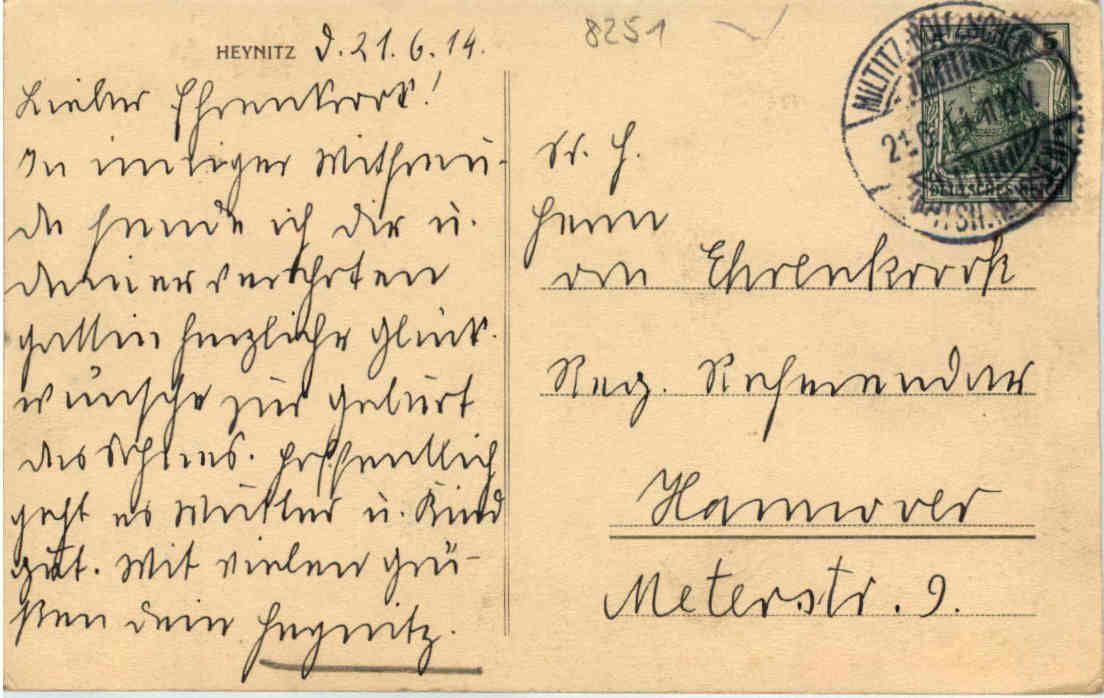 8251
HEYNITZ d. 21.6.14.
Lieber Ehrenkrook!
In inniger Mitfreu-
de sende ich dir u.
deiner verehrten
Gattin herzliche Glück-
wünsche zur Geburt
des Sohnes. Hoffentlich
geht es Mutter u. Kind
gut. Mit vielen Grü-
ßen dein Heynitz.
Sr. H.
Herrn
von Ehrenkrook
Reg. Referendar
Hannover
Meterstr. 9.
MILTITZ-ROITZSCHEN
21.6.14. 11-12V.
5
DEUTSCHES REICH